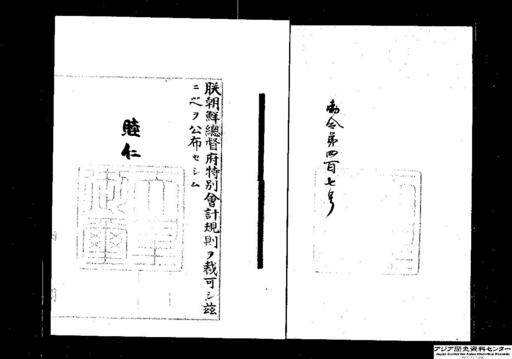 勅令第四百七号
朕朝鮮總督府特別會計規則ヲ裁可シ茲
ニ之ヲ公布セシム
睦仁
アジア歴史資料センター
Japan Center for Asian Historical Records